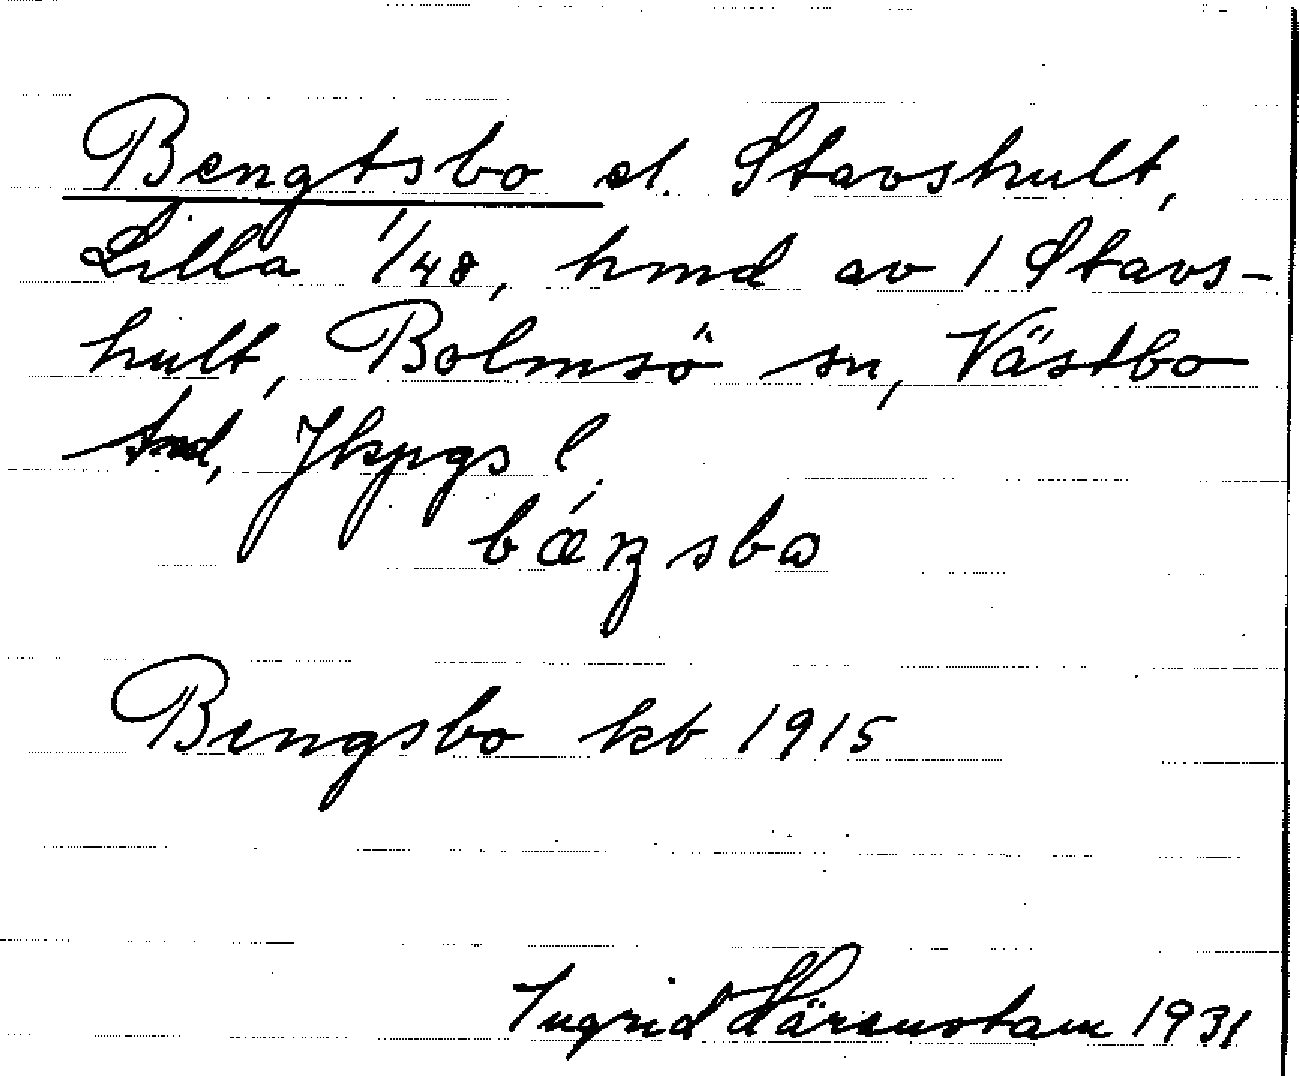 Bengtsbo el. Stavshult,
Lilla 1/48, hmd av 1 Stavs-
hult, Bolmsö sn, Västbo
hd, Jkpgs l.
bǽŋsbɷ
Bengsbo kb 1915
Ingrid Härenstam 1931